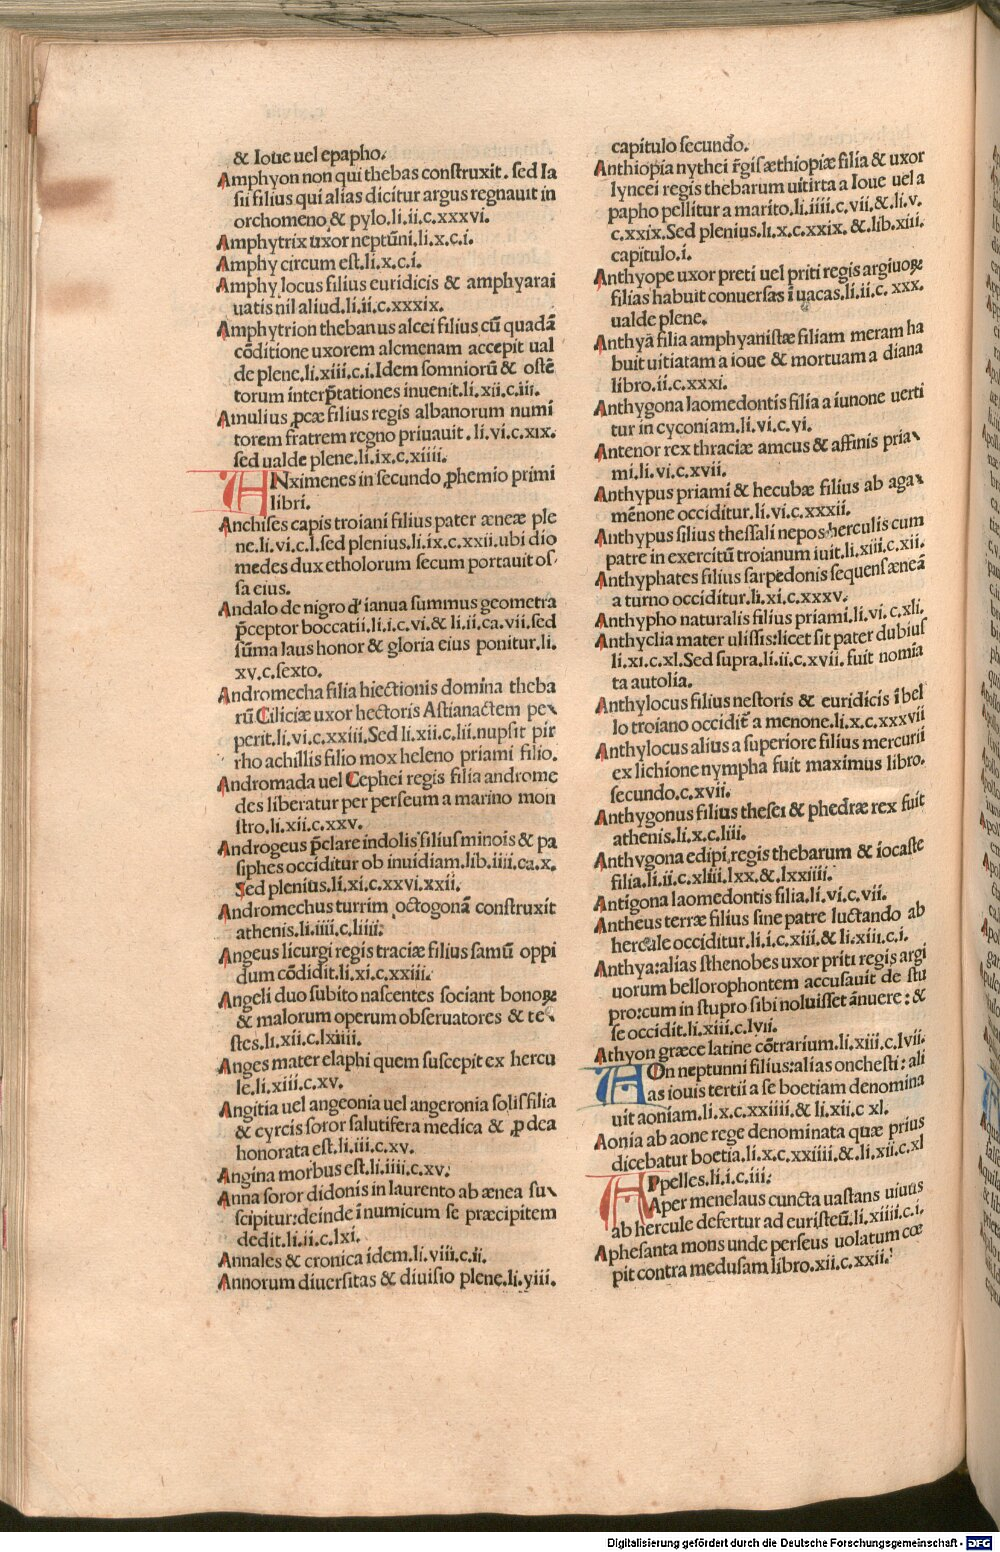 & Ioue uel epapho.
Amphyon non qui thebas construxit. sed Ia
sii filius qui alias dicitur argus regnauit in
orchomeno & pylo.li.ii.c.xxxvi.
Amphytrix uxor neptūni.li.x.c.i.
Amphy circum est.li.x.c.i.
Amphy locus filius euridicis & amphyarai
uatis nil aliud.li.ii.c.xxxix.
Amphytrion thebanus alcei filius cū quadā
cōditione uxorem alcmenam accepit ual
de plene.li.xiii.c.i.Idem somniorū & ostē
torum interp̄tationes inuenit.li.xii.c.iii.
Amulius ꝓcæ filius regis albanorum numi
torem fratrem regno priuauit.li.vi.c.xix.
sed ualde plene.li.ix.c.xiiii.
ANximenes in secundo ꝓhemio primi
libri.
Anchises capis troiani filius pater æneæ ple
ne.li.vi.c.l.sed plenius.li.ix.c.xxii.ubi dio
medes dux etholorum secum portauit os/
sa eius.
Andalo de nigro d' ianua summus geometra
p̄ceptor boccatii.li.i.c.vi.& li.ii.ca.vii.sed
sūma laus honor & gloria eius ponitur.li.
xv.c.sexto.
Andromecha filia hiectionis domina theba
rū Ciliciæ uxor hectoris Astianactem pe\
perit.li.vi.c.xxiii.Sed li.xii.c.lii.nupsit pir
rho achillis filio mox heleno priami filio.
Andromada uel Cephei regis filia androme
des liberatur per perseum a marino mon
stro.li.xii.c.xxv.
Androgeus p̄clare indolis filius minois & pa
siphes occiditur ob inuidiam.lib.iiii.ca.x.
Sed plenius.li.xi.c.xxvi.xxii.
Andromechus turrim octogonā construxit
athenis.li.iiii.c.liiii.
Angeus licurgi regis traciæ filius samū oppi
dum cōdidit.li.xi.c.xxiii.
Angeli duo subito nascentes sociant bonoꝝ
& malorum operum obseruatores & te\
stes.li.xii.c.lxiiii.
Anges mater elaphi quem suscepit ex hercu
le.li.xiii.c.xv.
Angitia uel angeonia uel angeronia solis filia
& cyrcis soror salutifera medica & ꝓ dea
honorata est.li.iii.c.xv.
Angina morbus est.li.iiii.c.xv.
Anna soror didonis in laurento ab ænea su\
scipitur:deinde i numicum se præcipitem
dedit.li.ii.c.lxi.
Annales & cronica idem.li.viii.c.ii.
Annorum diuersitas & diuisio plene.li.viii.
capitulo secundo.
Anthiopia nythei r̄gis æthiopiæ filia & uxor
lyncei regis thebarum uitirta a Ioue uel a
papho pellitur a marito.li.iiii.c.vii.&.li.v.
c.xxix.Sed plenius.li.x.c.xxix.&.lib.xiii.
capitulo.i.
Anthyope uxor preti uel priti regis argiuoꝝ
filias habuit conuersas ī uacas.li.ii.c.xxx.
ualde plene.
Anthyā filia amphyanistæ filiam meram ha
buit uitiatam a ioue & mortuam a diana
libro.ii.c.xxxi.
Anthygona laomedontis filia a iunone uerti
tur in cyconiam.li.vi.c.vi.
Antenor rex thraciæ amcus & affinis pria\
mi.li.vi.c.xvii.
Anthypus priami & hecubæ filius ab aga\
mēnone occiditur.li.vi.c.xxxii.
Anthypus silius thessali nepos herculis cum
patre in exercitū troianum iuit.li.xiii.c.xii.
Anthyphates filius sarpedonis sequens æneā
a turno occiditur.li.xi.c.xxxv.
Anthypho naturalis filius priami.li.vi.c.xli.
Anthyclia mater ulissis:licet sit pater dubius
li.xi.c.xl.Sed supra.li.ii.c.xvii. fuit nomia
ta autolia.
Anthylocus filius nestoris & euridicis i bel
lo troiano occidit̄ a menone.li.x.c.xxxvii
Anthylocus alius a superiore filius mercurii
ex lichione nympha fuit maximus libro.
secundo.c.xvii.
Anthygonus filius thesei & phedræ rex fuit
athenis.li.x.c.liii.
Anthygona edipi regis thebarum & iocaste
filia.li.ii.c.xliii.lxx.&.lxxiiii.
Antigona laomedontis filia.li.vi.c.vii.
Antheus terræ filius sine patre luctando ab
hercule occiditur.li.i.c.xiii.& li.xiii.c.i.
Anthya:alias sthenobes uxor priti regis argi
uorum bellorophontem accusauit de stu
pro:cum in stupro sibi noluisset ānuere:&
se occidit.li.xiii.c.lvii.
Athyon græce latine cōtrarium.li.xiii.c.lvii.
AOn neptunni filius:alias onchesti: ali
as iouis tertii a se boetiam denomina
uit aoniam.li.x.c.xxiiii.& li.xii.c xl.
Aonia ab aone rege denominata quæ prius
dicebatur boetia.li.x.c.xxiiii.&.li.xii.c.xl
APpelles.li.i.c.iii.
Aper menelaus cuncta uastans uiuus
ab hercule defertur ad euristeū.li.xiiii.c.i.
Aphesanta mons unde perseus uolatum cœ
pit contra medusam libro.xii.c.xxii.
Digitalisierung gefördert durch die Deutsche Forschungsgemeinschaft - DFG